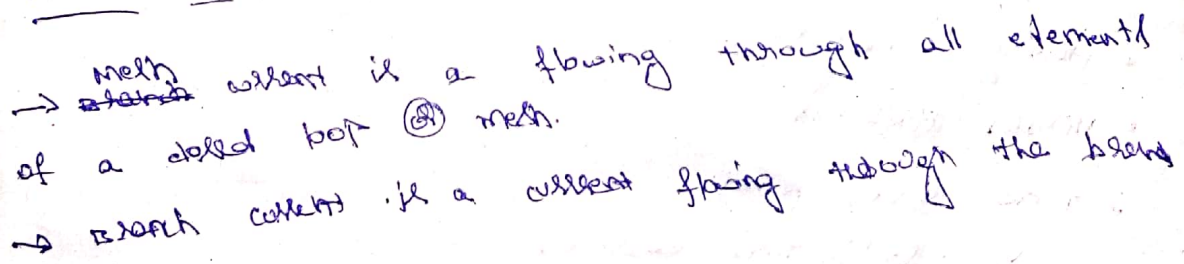 → Mesh current is a flowing through all elements
of a closed loop (or) mesh.
→ Branch current is a current flowing through the branch